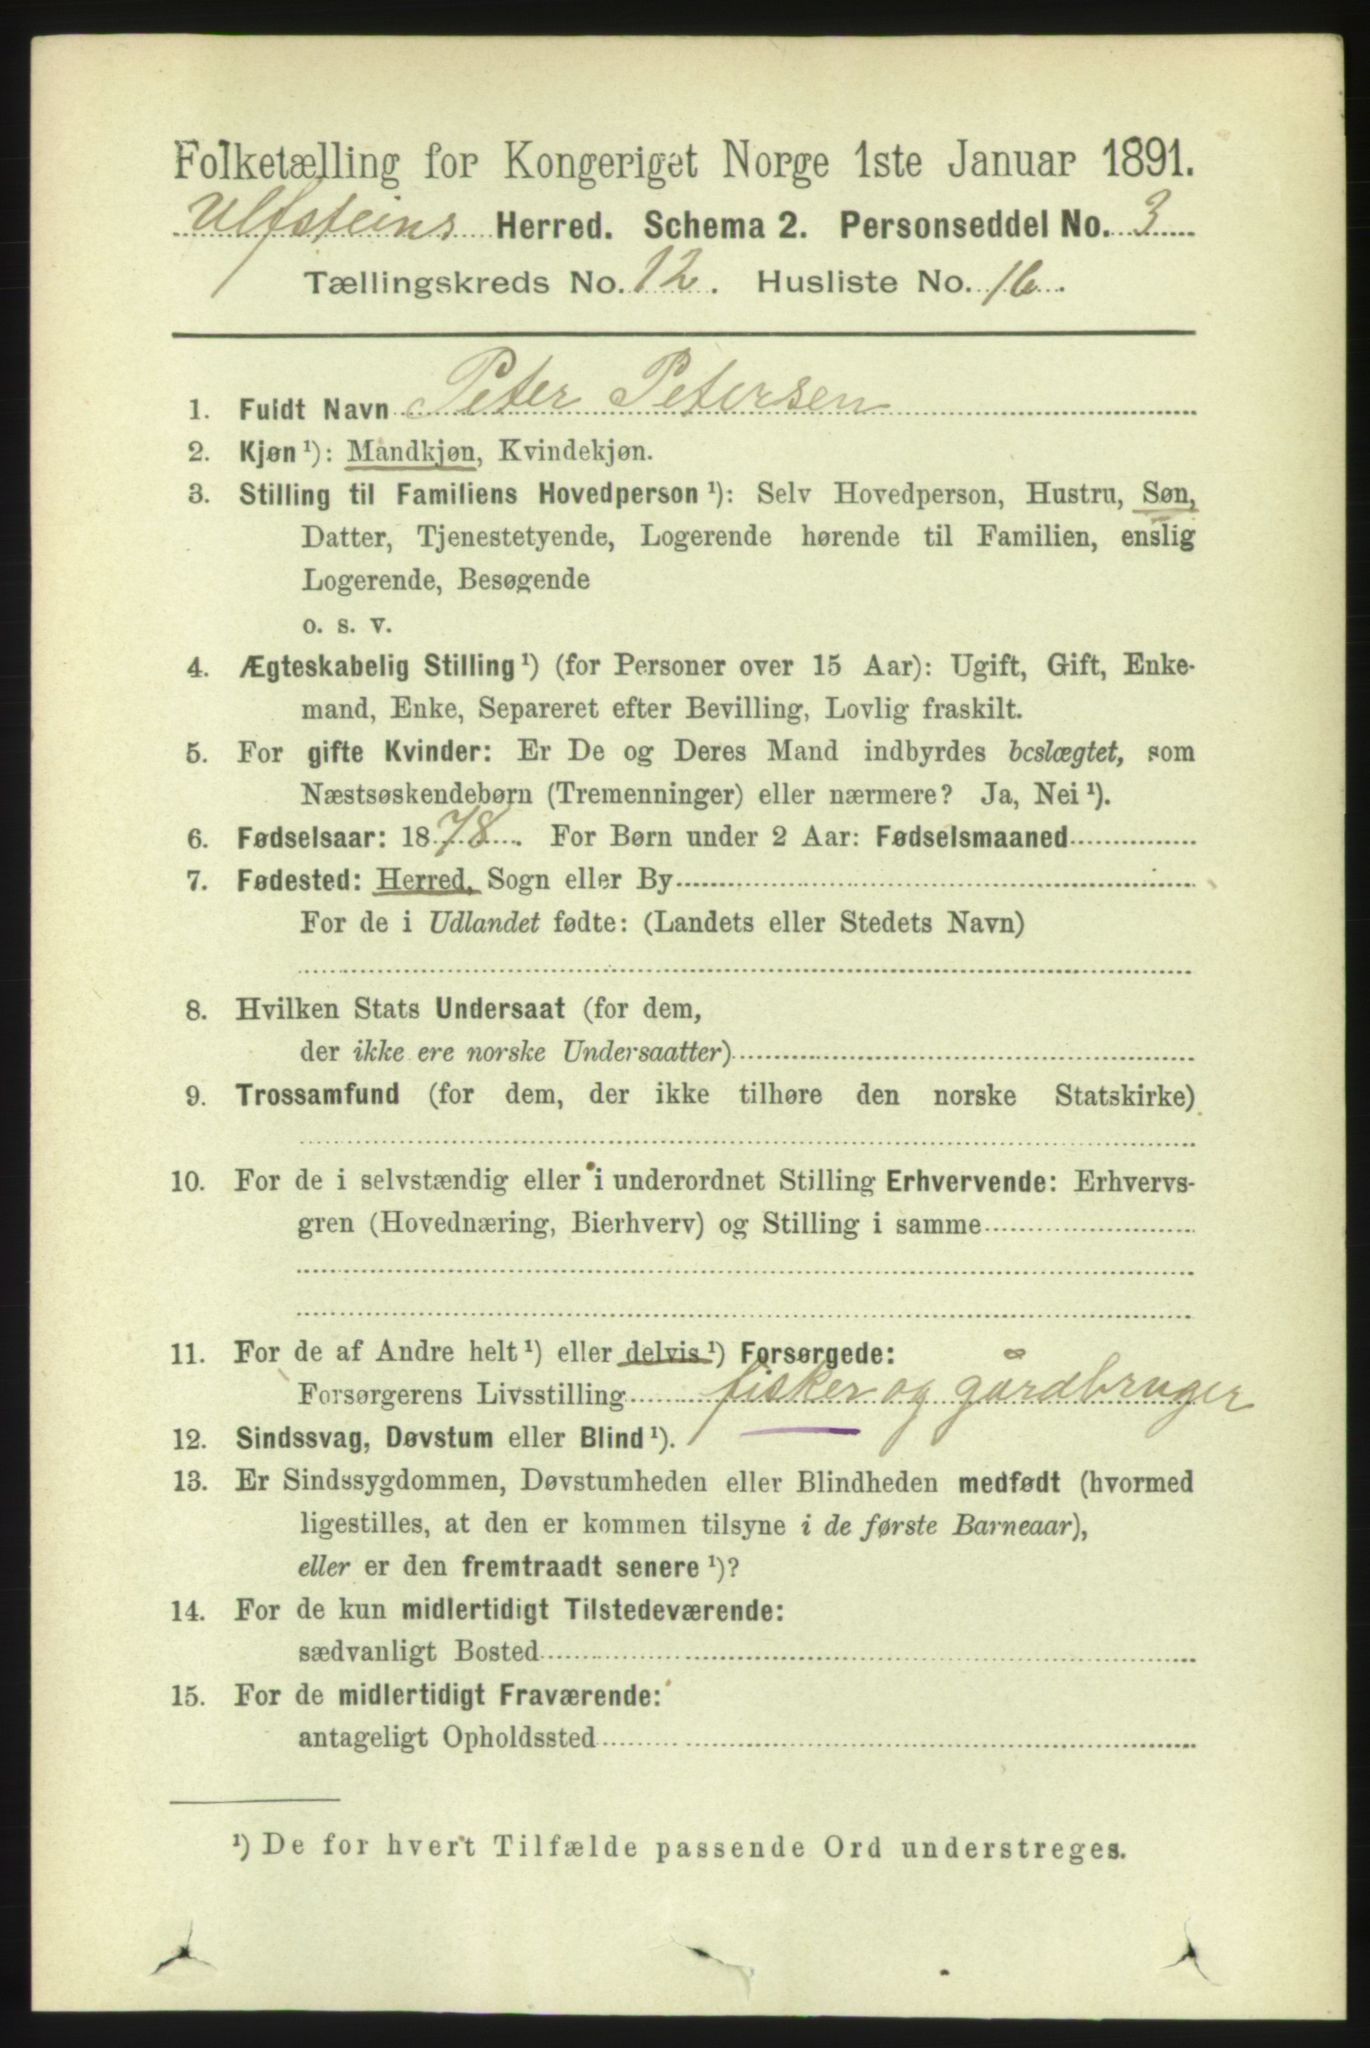 Folketælling for Kongeriget Norge 1ste Januar 1891.
Ulfsteins Herred. Schema 2. Personseddel No. 3
Tællingskreds No. 12. Husliste No. 16.
1. Fuldt Navn Peter Petersen
2. Kjøn ¹): Mandkjøn, Kvindekjøn.
3. Stilling til Familiens Hovedperson ¹): Selv Hovedperson, Hustru, Søn,
Datter, Tjenestetyende, Logerende hørende til Familien, enslig
Logerende, Besøgende
o. s. v.
4. Ægteskabelig Stilling ¹) (for Personer over 15 Aar): Ugift, Gift, Enke-
mand, Enke, Separeret efter Bevilling, Lovlig fraskilt.
5. For gifte Kvinder: Er De og Deres Mand indbyrdes beslægtet, som
Næstsøskendebørn (Tremenninger) eller nærmere? Ja, Nei ¹).
6. Fødselsaar: 1878. For Børn under 2 Aar: Fødselsmaaned
7. Fødested: Herred, Sogn eller By
For de i Udlandet fødte: (Landets eller Stedets Navn)
8. Hvilken Stats Undersaat (for dem,
der ikke ere norske Undersaatter)
9. Trossamfund (for dem, der ikke tilhøre den norske Statskirke)
10. For de i selvstændig eller i underordnet Stilling Erhvervende: Erhvervs-
gren (Hovednæring, Bierhverv) og Stilling i samme
11. For de af Andre helt ¹) eller delvis ¹) Forsørgede:
Forsørgerens Livsstilling fisker og gårdbruger
12. Sindssvag, Døvstum eller Blind ¹).
13. Er Sindssygdommen, Døvstumheden eller Blindheden medfødt (hvormed
ligestilles, at den er kommen tilsyne i de første Barneaar),
eller er den fremtraadt senere ¹)?
14. For de kun midlertidigt Tilstedeværende:
sædvanligt Bosted
15. For de midlertidigt Fraværende:
antageligt Opholdssted
¹) De for hvert Tilfælde passende Ord understreges.